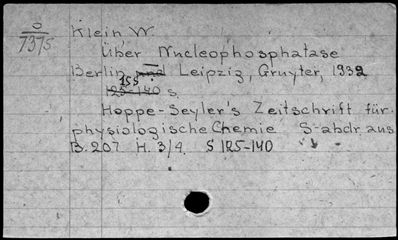 O
7375
Klein W.
Über Nucleophosphatase
Berlin und Leipzig, Gruyter, 1932
155
125-140 s
Hoppe-Seyler's Zeitschrift für
physiologische Chemie S-abdr aus
B. 207 H. 3/4. S 125-140